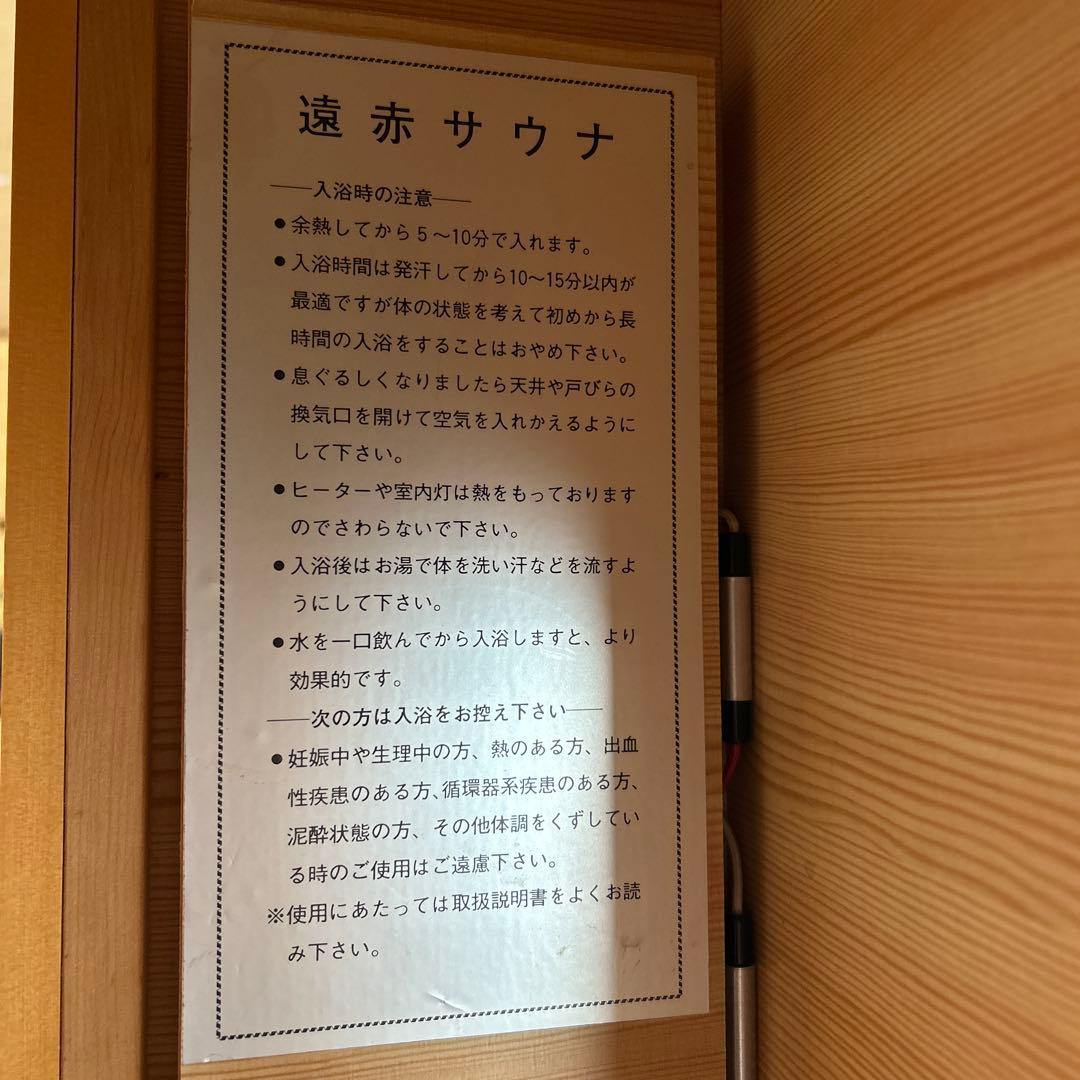 遠赤サウナ
――入浴時の注意――
●余熱してから5〜10分で入れます。
●入浴時間は発汗してから10〜15分以内が
最適ですが体の状態を考えて初めから長
時間の入浴をすることはおやめ下さい。
●息ぐるしくなりましたら天井や戸びらの
換気口を開けて空気を入れかえるように
して下さい。
●ヒーターや室内灯は熱をもっております
のでさわらないで下さい。
●入浴後はお湯で体を洗い汗などを流すよ
うにして下さい。
●水を一口飲んでから入浴しますと、より
効果的です。
――次の方は入浴をお控え下さい――
●妊娠中や生理中の方、熱のある方、出血
性疾患のある方、循環器系疾患のある方、
泥酔状態の方、その他体調をくずしてい
る時のご使用はご遠慮下さい。
※使用にあたっては取扱説明書をよくお読
み下さい。